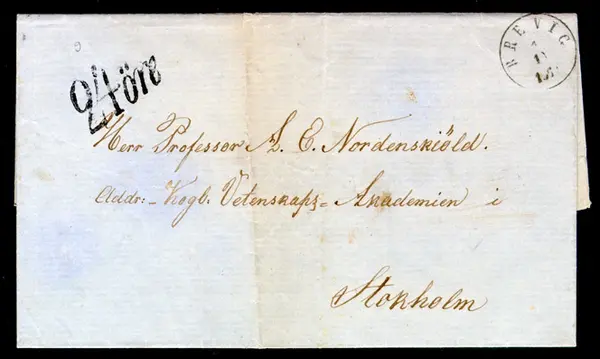 BREVIG
24 öre
Herr Professor A. E. Nordenskiöld.
Addr:- Kogl. Vetenskaps- Akademien i
Stokholm